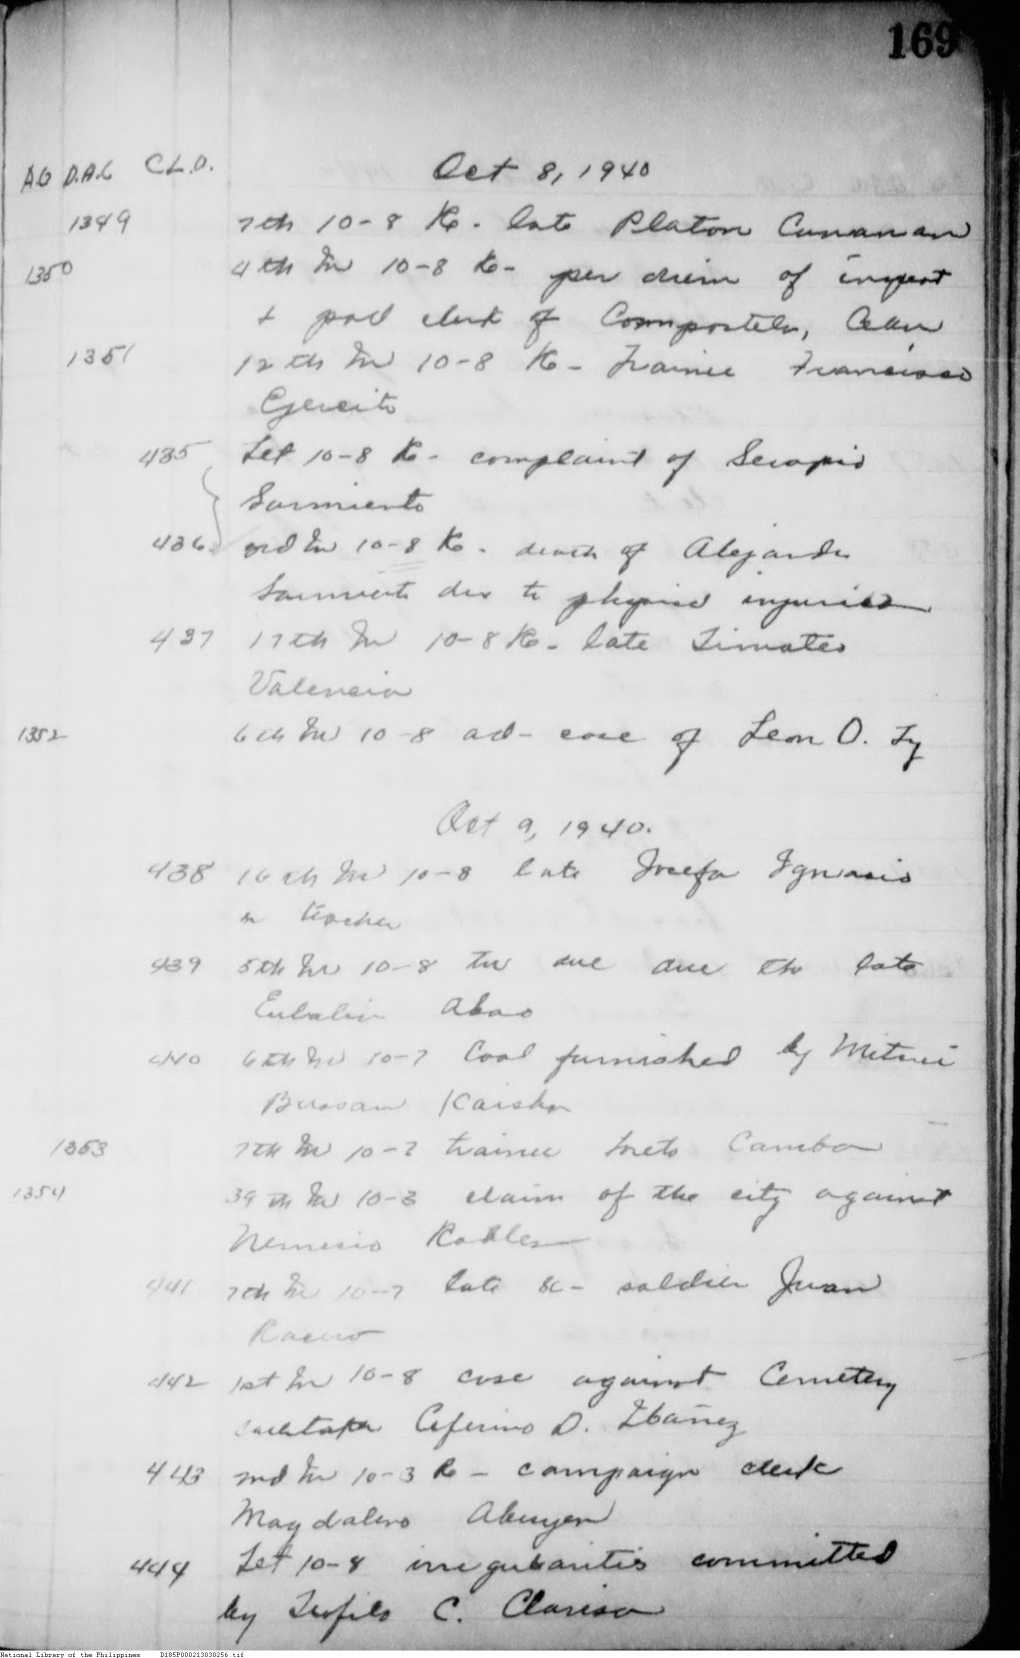 169
A.G D.A.G C.L.O. Oct 8, 1940
1349 7th 10-8 Re. late Platon Cunanan
1350 4th In 10-8 Re- per diem of inspect
+ poll clerk of Compostela, Cebu
1351 12th In 10-8 Re - Trainee Francisco
Ejercito
435 Let 10-8 Re - complaint of Serapio
Sarmiento
436 3rd In 10-8 Re. death of Alejandro
Sarmiento due to physical injuries
437 17th In 10-8 Re. late Timoteo
Valencia
1352 6th In 10-8 ad- case of Leon O. Ty
Oct 9, 1940.
438 16th In 10-8 late Josefa Ignacio
a teacher
439 5th In 10-8 due the late
Eulalia Abao
440 6th In 10-7 Coal furnished by Mitsui
Bussan Kaisha
1353 7th In 10-7 trainee Loreto Camba
1354 39th In 10-3 claim of the city against
Nemesio Robles
441 7th In 10-7 late Sc- soldier Juan
Racero
442 1st In 10-8 case against Cemetery
caretaker Ceferino D. Ibañez
443 2nd In 10-3 Re - campaign clerk
Magdaleno Abuyen
444 Let 10-8 irregularities committed
by Teofilo C. Clarisa
National Library of the Philippines D185P000213030256.tif